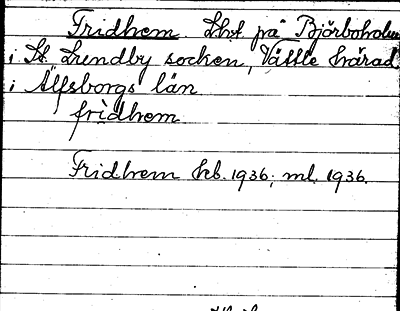 Fridhem. Lht på Björboholm
i St. Lundby socken, Vättle härad
i Älfsborgs län
fridhem
Fridhem kb. 1936; ml. 1936.